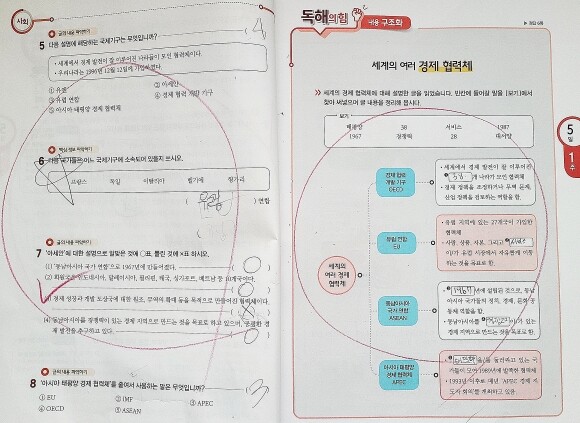 사회
글의 내용 파악하기
5 다음 설명에 해당하는 국제기구는 무엇입니까?
4
• 세계에서 경제 발전이 잘 이루어진 나라들이 모인 협력체이다.
• 우리나라는 1996년 12월 12일에 가입하였다.
① 유엔
② 아세안
③ 유럽 연합
④ 경제 협력 개발 기구
⑤ 아시아 태평양 경제 협력체
핵심 정보 파악하기
6 다음 국가들은 어느 국제기구에 소속되어 있을지 쓰시오.
프랑스 독일 이탈리아 벨기에 헝가리
( 유럽 )연합
글의 내용 파악하기
7 '아세안'에 대한 설명으로 알맞은 것에 ○표, 틀린 것에 ×표 하시오.
(1) '동남아시아 국가 연합'으로 1967년에 만들어졌다.
(2) 회원국은 인도네시아, 말레이시아, 필리핀, 태국, 싱가포르, 베트남 등 10개국이다.
(3) 경제 성장과 개발 도상국에 대한 원조, 무역의 확대 등을 목적으로 만들어진 협력체이다.
(4) 동남아시아를 경쟁력이 있는 경제 지역으로 만드는 것을 목표로 하고 있으며, 공평한 경
제 발전을 추구하고 있다.
글의 내용 파악하기
8 '아시아 태평양 경제 협력체'를 줄여서 사용하는 말은 무엇입니까?
3
① EU
② IMF
③ APEC
④ OECD
⑤ ASEAN
독해의 힘
내용 구조화
세계의 여러 경제 협력체
세계의 경제 협력체에 대해 설명한 글을 읽었습니다. 빈칸에 들어갈 말을 [보기]에서
찾아 써넣으며 글 내용을 정리해 봅시다.
보기
태평양 38 서비스 1987
1967 경쟁력 28 대서양
5일
1주
세계의
여러 경제
협력체
경제 협력
개발 기구
OECD
• 세계에서 경제 발전이 잘 이루어진
38 개 나라가 모인 협력체
• 경제 정책을 조정하거나 무역 문제,
산업 정책을 검토하는 역할을 함.
유럽 연합
EU
• 유럽 지역에 있는 27개국이 가입한
협력체
• 사람, 상품, 자본, 그리고
이/가 유럽 시장에서 자유롭게 이동
하는 것을 목표로 함.
동남아시아
국가 연합
ASEAN
1967 년에 설립된 것으로, 동남
아시아 국가들의 정치, 경제, 문화 공
동체 역할을 함.
• 동남아시아를 이/가 있는
경제 지역으로 만드는 것을 목표로 함.
아시아 태평양
경제 협력체
APEC
을/를 둘러싸고 있는 국
가들이 모여 1989년에 발족한 협력체
• 1993년 이후로 매년 'APEC 경제 지
도자 회의'를 개최하고 있음.